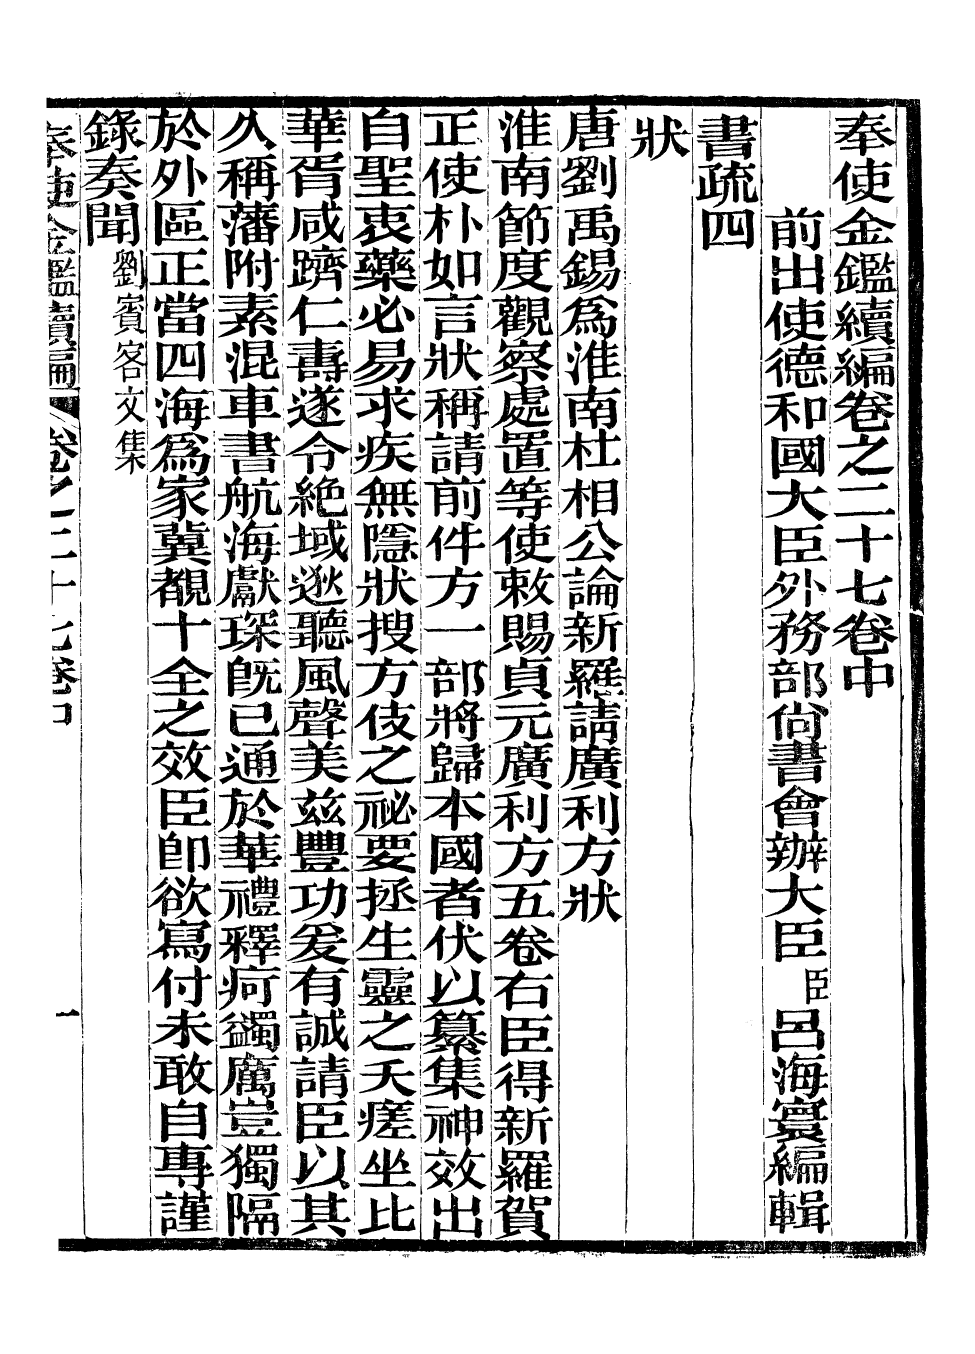 奉使金鑑續編卷之二十七卷中
前出使德和國大臣外務部尙書會辦大臣臣呂海寰編輯
書疏四
狀
唐劉禹錫爲淮南杜相公論新羅請廣利方狀
淮南節度觀察處置等使敕賜貞元廣利方五卷右臣得新羅賀
正使朴如言狀稱請前件方一部將歸本國者伏以纂集神效出
自聖衷藥必易求疾無隱狀搜方伎之祕要拯生靈之夭瘥坐比
華胥咸躋仁壽遂令絕域逖聽風聲美茲豐功爰有誠請臣以其
久稱藩附素混車書航海獻琛旣已通於華禮釋疴蠲厲豈獨隔
於外區正當四海爲家冀覩十全之效臣卽欲寫付未敢自專謹
錄奏聞劉賓客文集
奉使金鑑續編 卷之二十七卷中 一